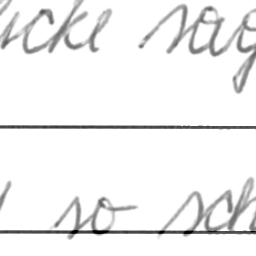 icke sag
so sch